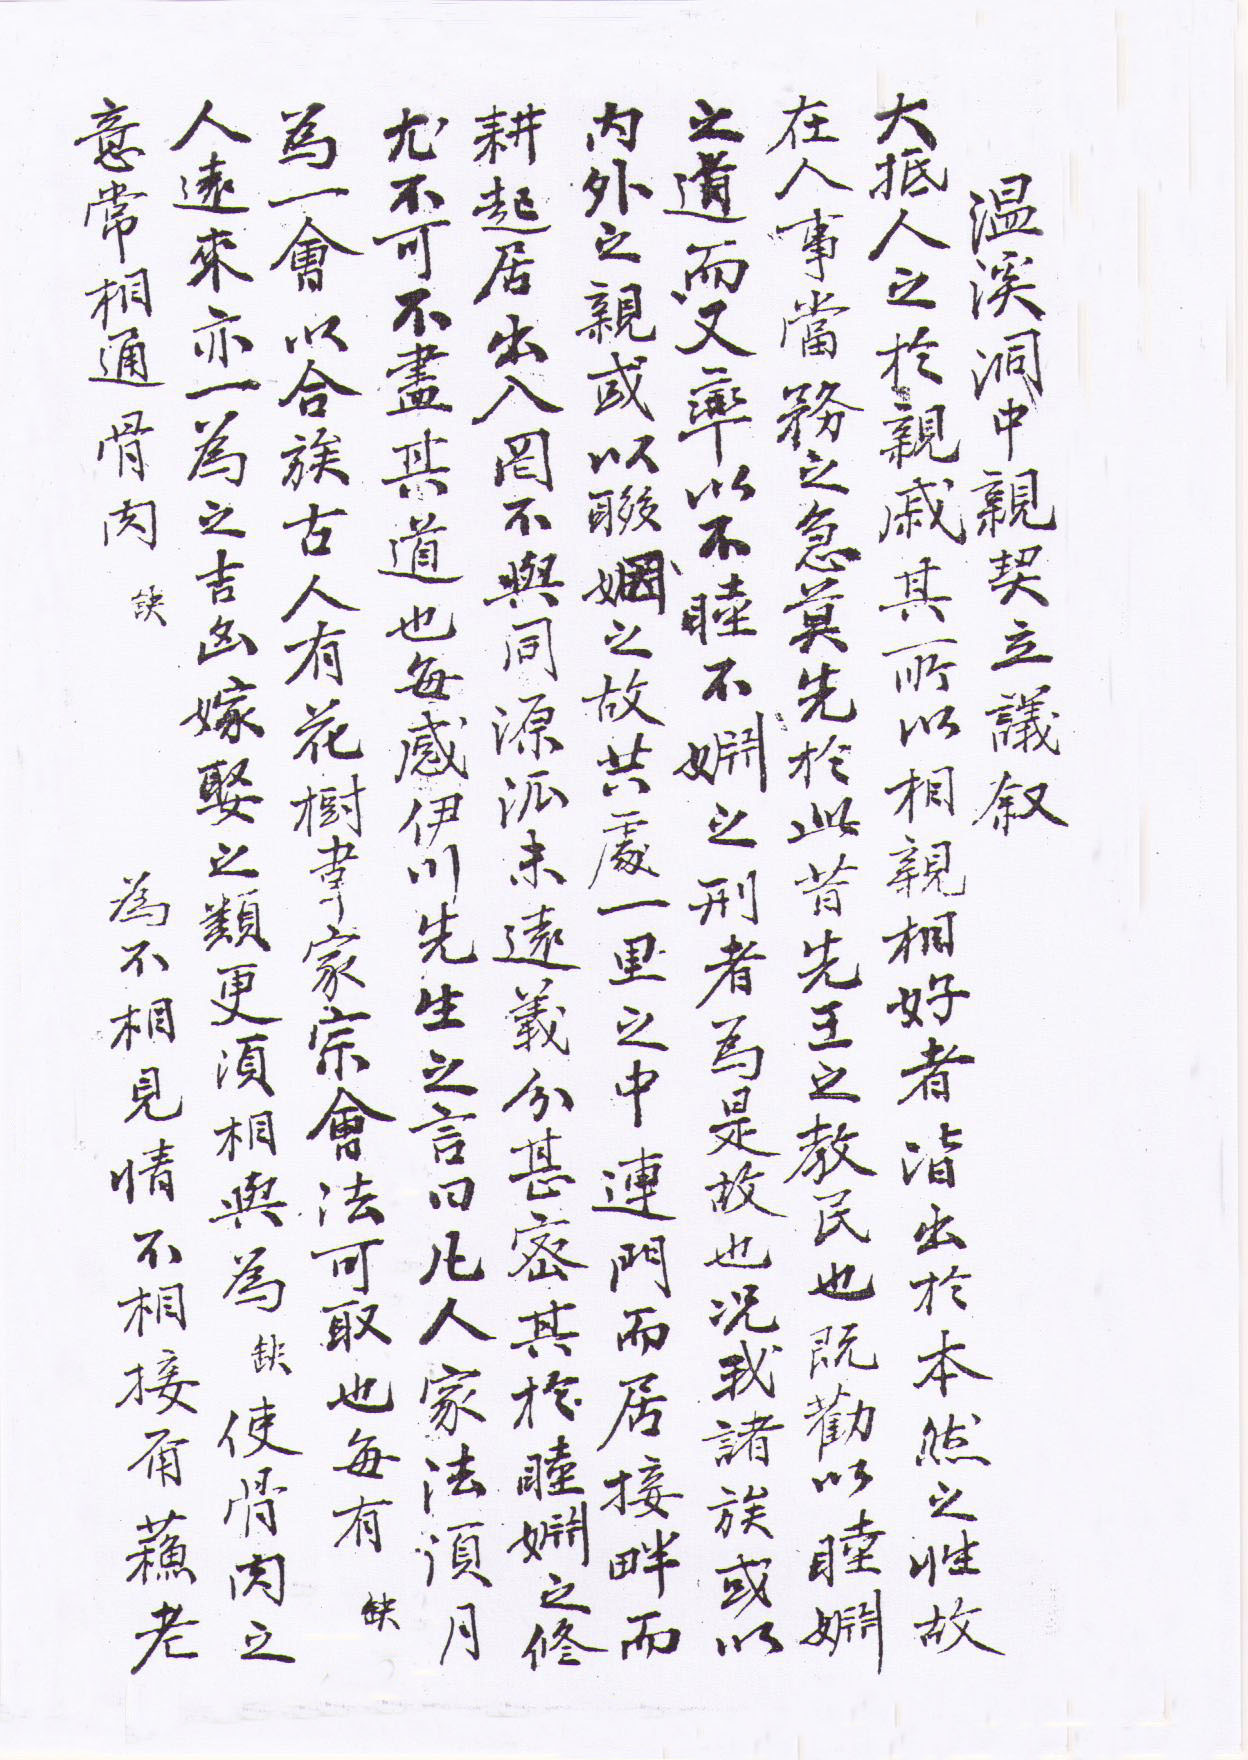 温溪洞中親契立議叙
大抵人之於親戚其所以相親相好者皆出於本然之性故
在人事當務之急莫先於此昔先王之教民也既勸以睦婣
之道而又率以不睦不婣之刑者為是故也况我諸族或以
内外之親或以聯姻之故共處一里之中連門而居接畔而
耕起居出入罔不與同源派未遠義分甚密其於睦婣之修
尤不可不盡其道也每感伊川先生之言曰凡人家法須月
為一會以合族古人有花樹韋家宗會法可取也每有 缺
人遠來亦一為之吉凶嫁娶之類更須相與為 缺 使骨肉之
意常相通骨肉 缺 為不相見情不相接甭蘓老